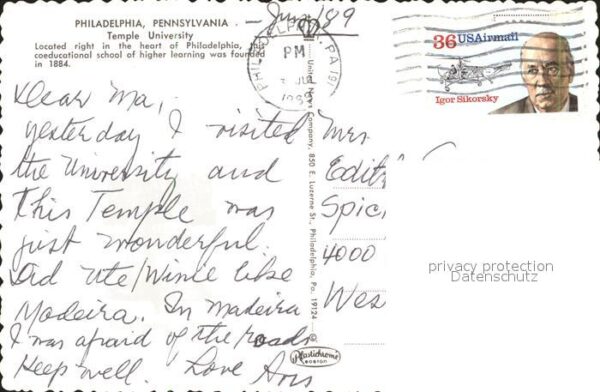 PHILADELPHIA, PENNSYLVANIA
Temple University
Located right in the heart of Philadelphia, this
coeducational school of higher learning was founded
in 1884.
PM
1989
36 USAirmail
Igor Sikorsky
Dear Ma,
yesterday I visited
the University and
this Temple was
just wonderful.
Did Ute/Winie like
Madeira. In Madeira
I was afraid of the roads
Keep well. Love
United News Company, 850 E. Luzerne St., Philadelphia, Pa. 19124
Plastichrome
Mrs
Edith
Spic
4000
Wes
privacy protection
Datenschutz